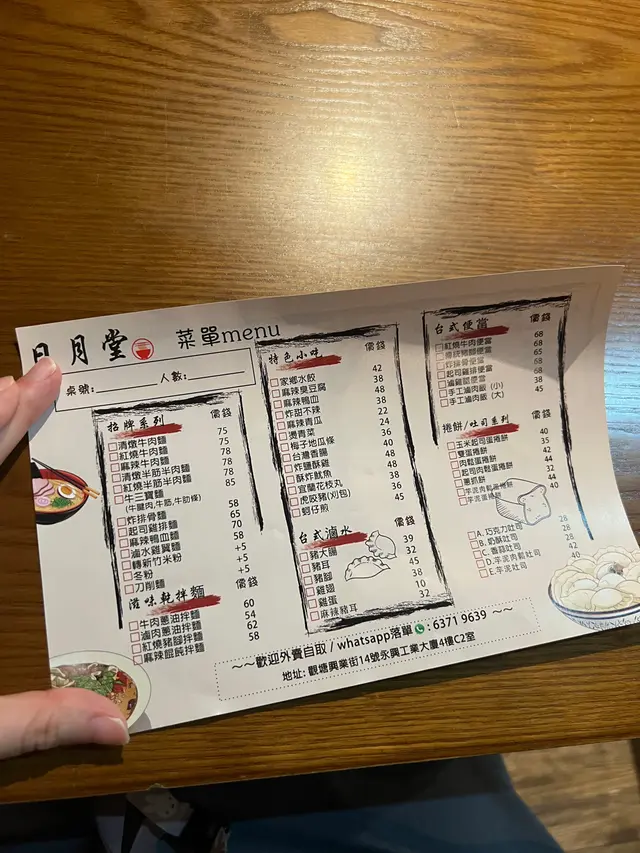 日月堂
菜單menu
桌號:
人數:
招牌系列 價錢
清燉牛肉麵 75
紅燒牛肉麵 75
麻辣牛肉麵 78
清燉半筋半肉麵 78
紅燒半筋半肉麵 85
牛三寶麵
(牛腱肉,牛筋,牛肋條)
炸排骨麵 58
起司雞排麵 65
麻辣鴨血麵 70
滷水雞翼麵 58
轉新竹米粉 +5
冬粉 +5
刀削麵 +5
滋味乾拌麵 價錢
牛肉蔥油拌麵 60
滷肉蔥油拌麵 54
紅燒豬腳拌麵 62
麻辣餛飩拌麵 58
特色小味 價錢
家鄉水餃 42
麻辣臭豆腐 38
麻辣鴨血 48
炸甜不辣 38
麻辣青瓜 22
燙青菜 24
梅子地瓜條 36
台灣香腸 40
炸鹽酥雞 48
酥炸魷魚 48
宜蘭花枝丸 38
虎咬豬(刈包) 36
蚵仔煎 45
台式滷水 價錢
豬大腸 39
豬耳 32
豬腳 45
雞翅 38
雞蛋 10
麻辣豬耳 32
台式便當 價錢
紅燒牛肉便當 68
傳統豬腳便當 68
炸排骨便當 65
起司雞排便當 68
滷雞腿便當 58
手工滷肉飯 (小) 38
手工滷肉飯 (大) 45
捲餅/吐司系列 價錢
玉米起司蛋捲餅 40
雙蛋捲餅 35
肉鬆蛋捲餅 42
起司肉鬆蛋捲餅 44
蔥抓餅 32
芋泥肉鬆蛋捲餅 44
芋泥蛋捲餅 40
A. 巧克力吐司 28
B. 奶酥吐司 28
C. 香蒜吐司 28
D. 芋泥肉鬆吐司 42
E. 芋泥吐司 40
~~歡迎外賣自取 / whatsapp落單 : 6371 9639 ~~
地址: 觀塘興業街14號永興工業大廈4樓C2室